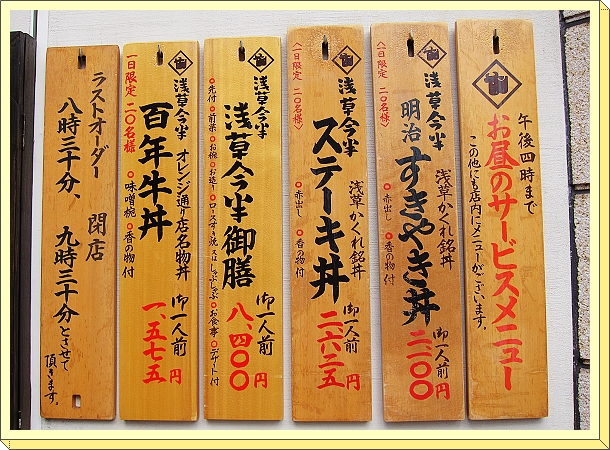 午後四時まで
お昼のサービスメニュー
この他にも店内にメニューがございます。
浅草今半
浅草かくれ銘丼
明治すきやき丼
御一人前
二、二〇〇円
〈一日限定 二〇名様〉
○赤出し ○香の物付
浅草今半
浅草かくれ銘丼
ステーキ丼
御一人前
二、六二五円
〈一日限定 二〇名様〉
○赤出し ○香の物付
浅草今半
浅草今半御膳
御一人前
八、四〇〇円
○先付 ○前菜 ○お椀 ○お造り ○ロースすき焼又はしゃぶしゃぶ ○お食事 ○デザート付
浅草今半
オレンジ通り店名物丼
百年牛丼
御一人前
一、五七五円
一日限定 二〇名様
○味噌椀 ○香の物付
ラストオーダー 閉店
八時三十分、九時三十分とさせて
頂きます。